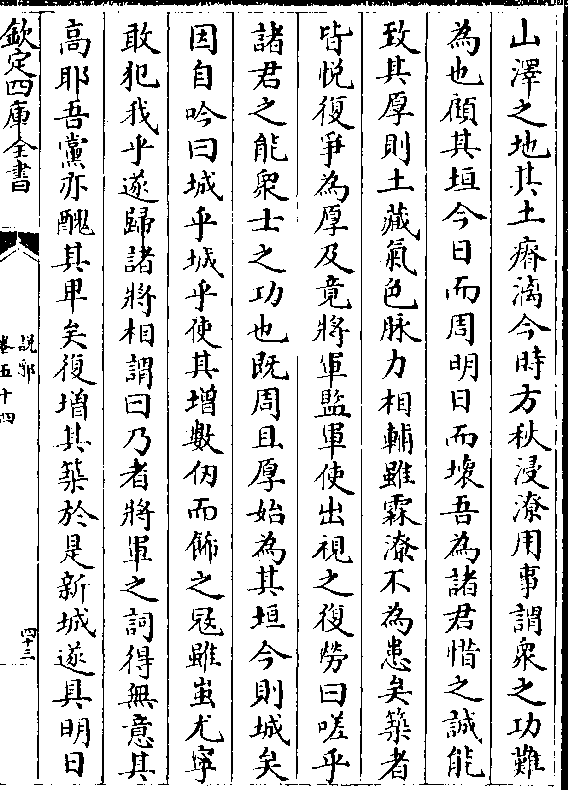 山澤之地其土瘠漓今時方秋浸潦用事謂衆之功難
為也頋其垣今日而周明日而壊吾為諸君惜之誠能
致其厚則土藏氣色脉力相輔雖霖潦不為患矣築者
皆悦復爭為厚及竟將軍監軍使出視之復勞曰嗟乎
諸君之能衆士之功也既周且厚始為其垣今則城矣
因自吟曰城乎城乎使其增數仞而飾之冦雖蚩尤寧
敢犯我乎遂歸諸將相謂曰乃者將軍之詞得無意其
高耶吾黨亦醜其卑矣復増其築於是新城遂具明日
欽定四庫全書
說郛
卷五十四
四十三